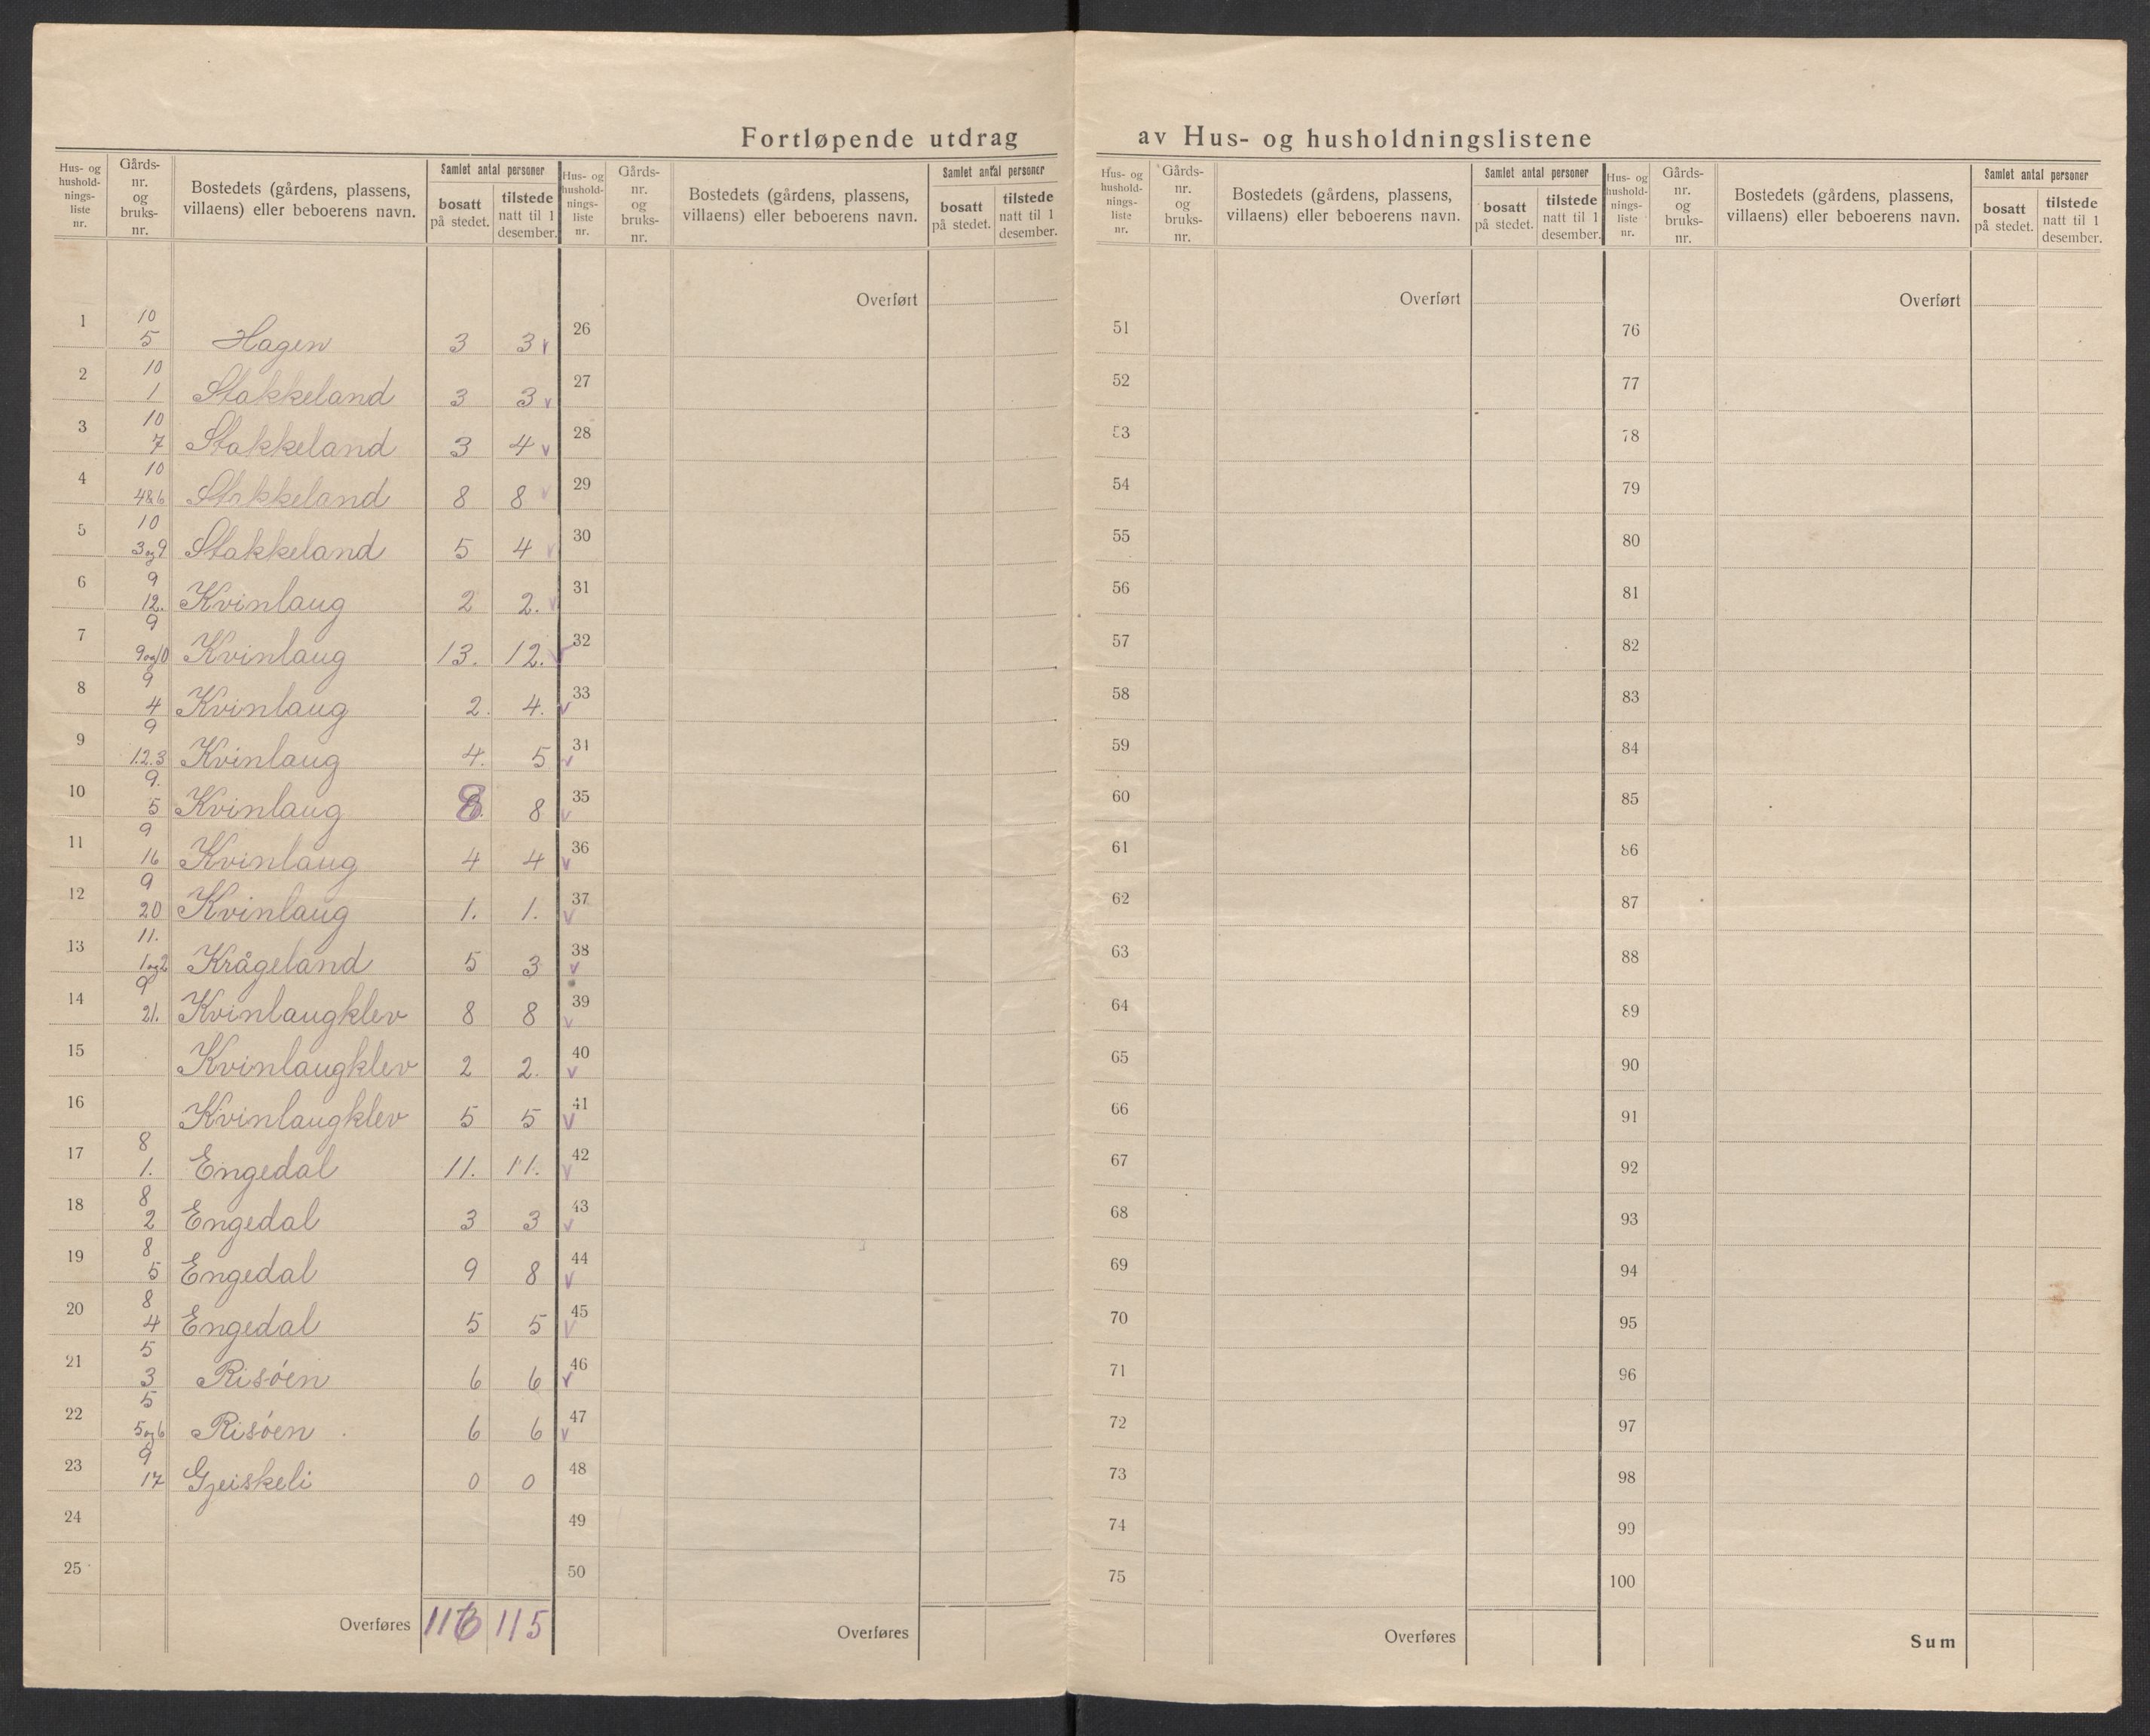 Fortløpende utdrag av Hus- og husholdningslistene
Hus- og hushold- nings- liste nr. Gårds- nr. og bruks- nr. Bostedets (gårdens, plassens, villaens) eller beboerens navn. Samlet antal personer bosatt på stedet. tilstede natt til 1 desember.
Hus- og hushold- nings- liste nr. Gårds- nr. og bruks- nr. Bostedets (gårdens, plassens, villaens) eller beboerens navn. Samlet antal personer bosatt på stedet. tilstede natt til 1 desember.
Hus- og hushold- nings- liste nr. Gårds- nr. og bruks- nr. Bostedets (gårdens, plassens, villaens) eller beboerens navn. Samlet antal personer bosatt på stedet. tilstede natt til 1 desember.
Hus- og hushold- nings- liste nr. Gårds- nr. og bruks- nr. Bostedets (gårdens, plassens, villaens) eller beboerens navn. Samlet antal personer bosatt på stedet. tilstede natt til 1 desember.
1 10 5 Hagen 3 3 v
2 10 1 Stakkeland 3 3 v
3 10 7 Stakkeland 3 4 v
4 10 4&6 Stakkeland 8 8 v
5 10 3og9 Stakkeland 5 4 v
6 9 12. Kvinlaug 2 2. v
7 9 9og10 Kvinlaug 13. 12. v
8 9 4 Kvinlaug 2. 4. v
9 9 1.2.3 Kvinlaug 4. 5 v
10 9. 5 Kvinlaug 8 8 v
11 9 16 Kvinlaug 4 4 v
12 9 20 Kvinlaug 1. 1. v
13 11. 1og2 Krågeland 5 3 v
14 9 21. Kvinlaugklev 8 8 v
15 Kvinlaugklev 2 2. v
16 Kvinlaugklev 5 5 v
17 8 1. Engedal 11. 11. v
18 8 2 Engedal 3 3 v
19 8 5 Engedal 9 8 v
20 8 4 Engedal 5 5 v
21 5 3 Risöen 6 6 v
22 5 5og6 Risöen 6 6 v
23 9 17 Gjeiskeli 0 0
24
25
Overføres 116 115
Overført
26
27
28
29
30
31
32
33
34
35
36
37
38
39
40
41
42
43
44
45
46
47
48
49
50
Overføres
Overført
51
52
53
54
55
56
57
58
59
60
61
62
63
64
65
66
67
68
69
70
71
72
73
74
75
Overføres
Overført
76
77
78
79
80
81
82
83
84
85
86
87
88
89
90
91
92
93
94
95
96
97
98
99
100
Sum